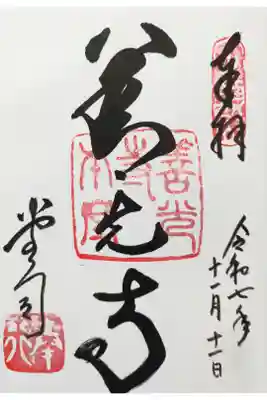 奉拝
令和七年
十一月十一日
善光寺
堂司